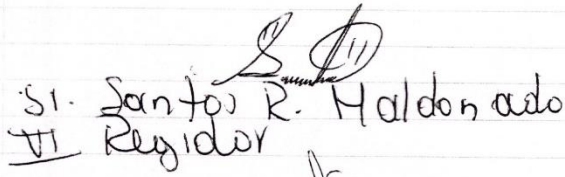 Sr. Santos R. Maldonado
VI Regidor